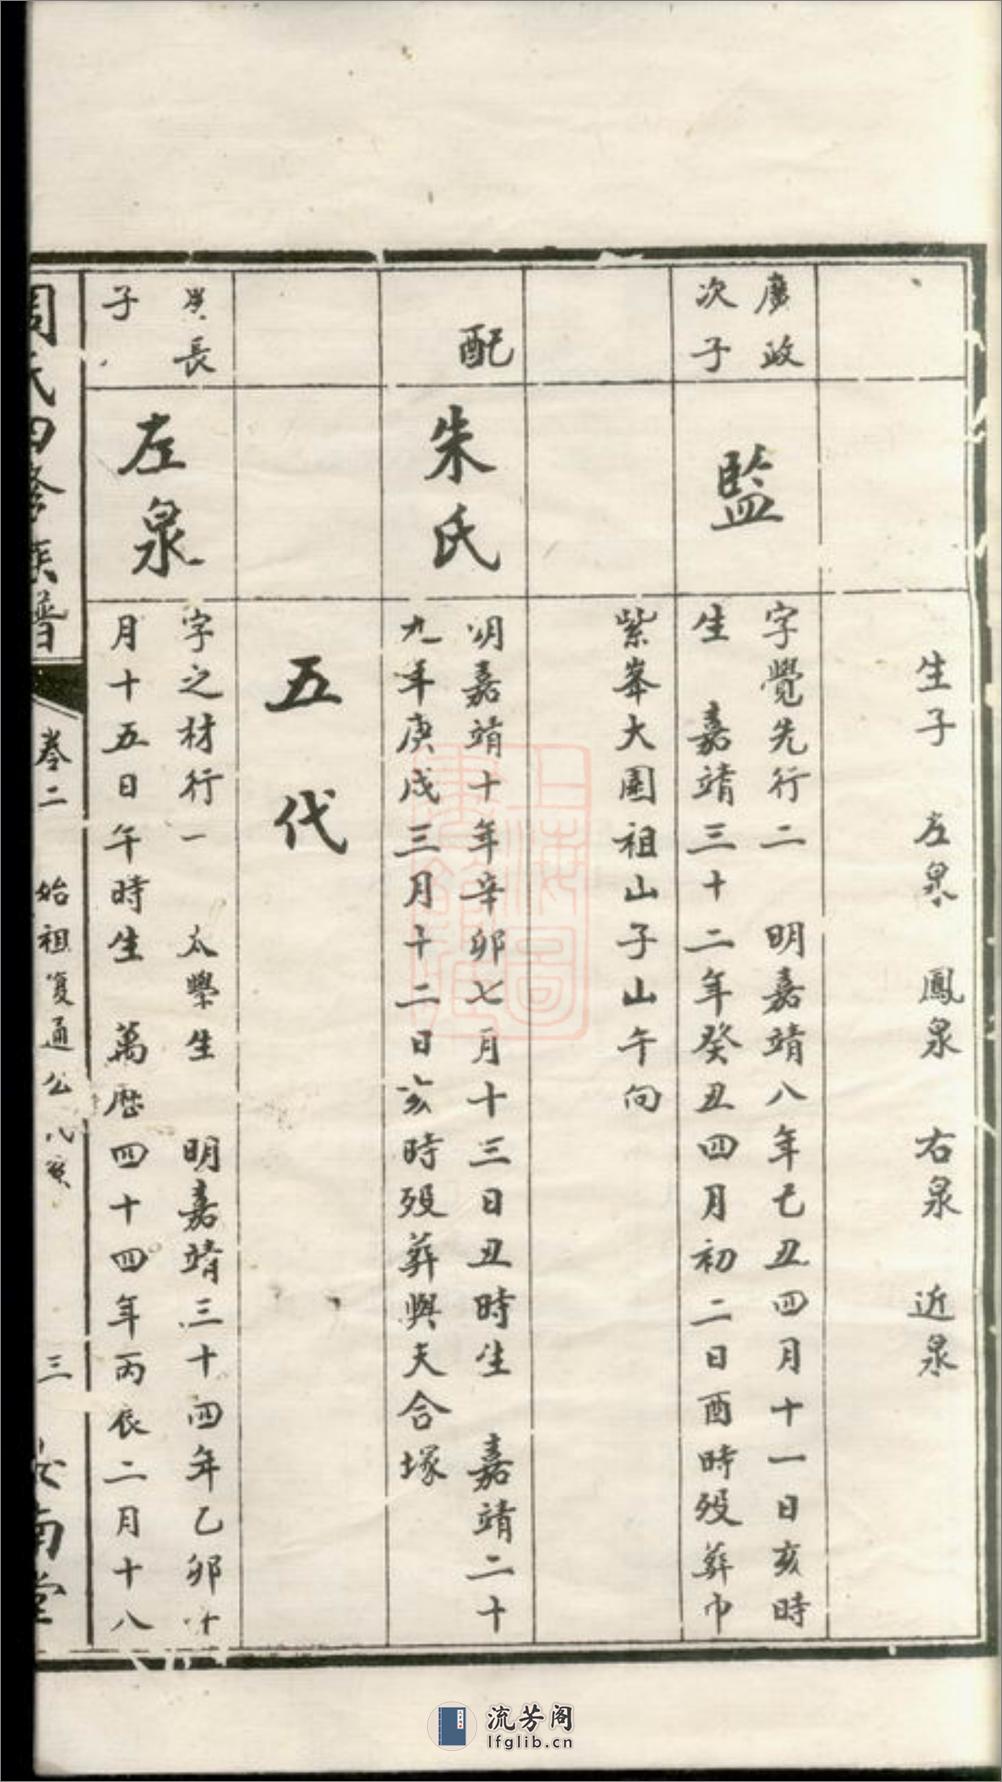 生子 左泉 鳳泉 右泉 近泉
廣政
次子
監
字覺先行二 明嘉靖八年己丑四月十一日亥時
生 嘉靖三十二年癸丑四月初二日酉時殁葬巾
紫峯大園祖山子山午向
配
朱氏
明嘉靖十年辛卯七月十三日丑時生 嘉靖二十
九年庚戌三月十二日亥時殁葬與夫合塚
五代
長
子
左泉
字之材行一 太學生 明嘉靖三十四年乙卯十
月十五日午時生 萬歷四十四年丙辰二月十八
周氏四修族譜
卷二 始祖復通公 三
南堂
上海圖書館藏
流芳阁
lfglib.cn